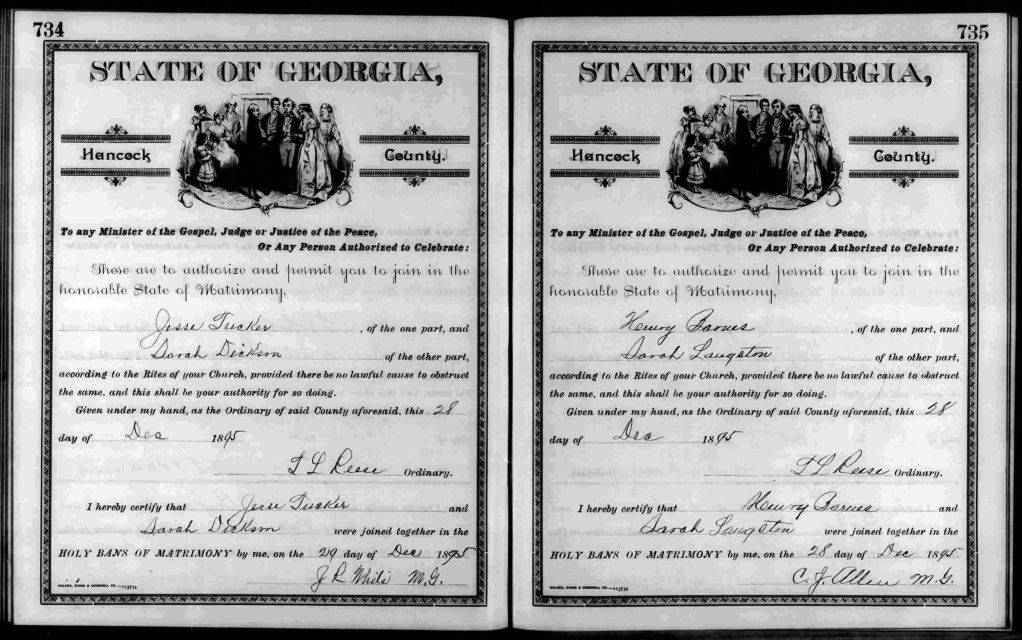 734
STATE OF GEORGIA,
Hancock County.
To any Minister of the Gospel, Judge or Justice of the Peace,
Or Any Person Authorized to Celebrate:
These are to authorize and permit you to join in the
honorable State of Matrimony,
Jesse Tucker , of the one part, and
Sarah Dickson of the other part,
according to the Rites of your Church, provided there be no lawful cause to obstruct
the same, and this shall be your authority for so doing.
Given under my hand, as the Ordinary of said County aforesaid, this 28
day of Dec 1895
T L Reese Ordinary.
I hereby certify that Jesse Tucker and
Sarah Dickson were joined together in the
HOLY BANS OF MATRIMONY by me, on the 29 day of Dec 1895
J R White M.G.
735
STATE OF GEORGIA,
Hancock County.
To any Minister of the Gospel, Judge or Justice of the Peace,
Or Any Person Authorized to Celebrate:
These are to authorize and permit you to join in the
honorable State of Matrimony,
Henry Barnes , of the one part, and
Sarah Langston of the other part,
according to the Rites of your Church, provided there be no lawful cause to obstruct
the same, and this shall be your authority for so doing.
Given under my hand, as the Ordinary of said County aforesaid, this 28
day of Dec 1895
T L Reese Ordinary.
I hereby certify that Henry Barnes and
Sarah Langston were joined together in the
HOLY BANS OF MATRIMONY by me, on the 28 day of Dec 1895
C. J. Allen M.G.